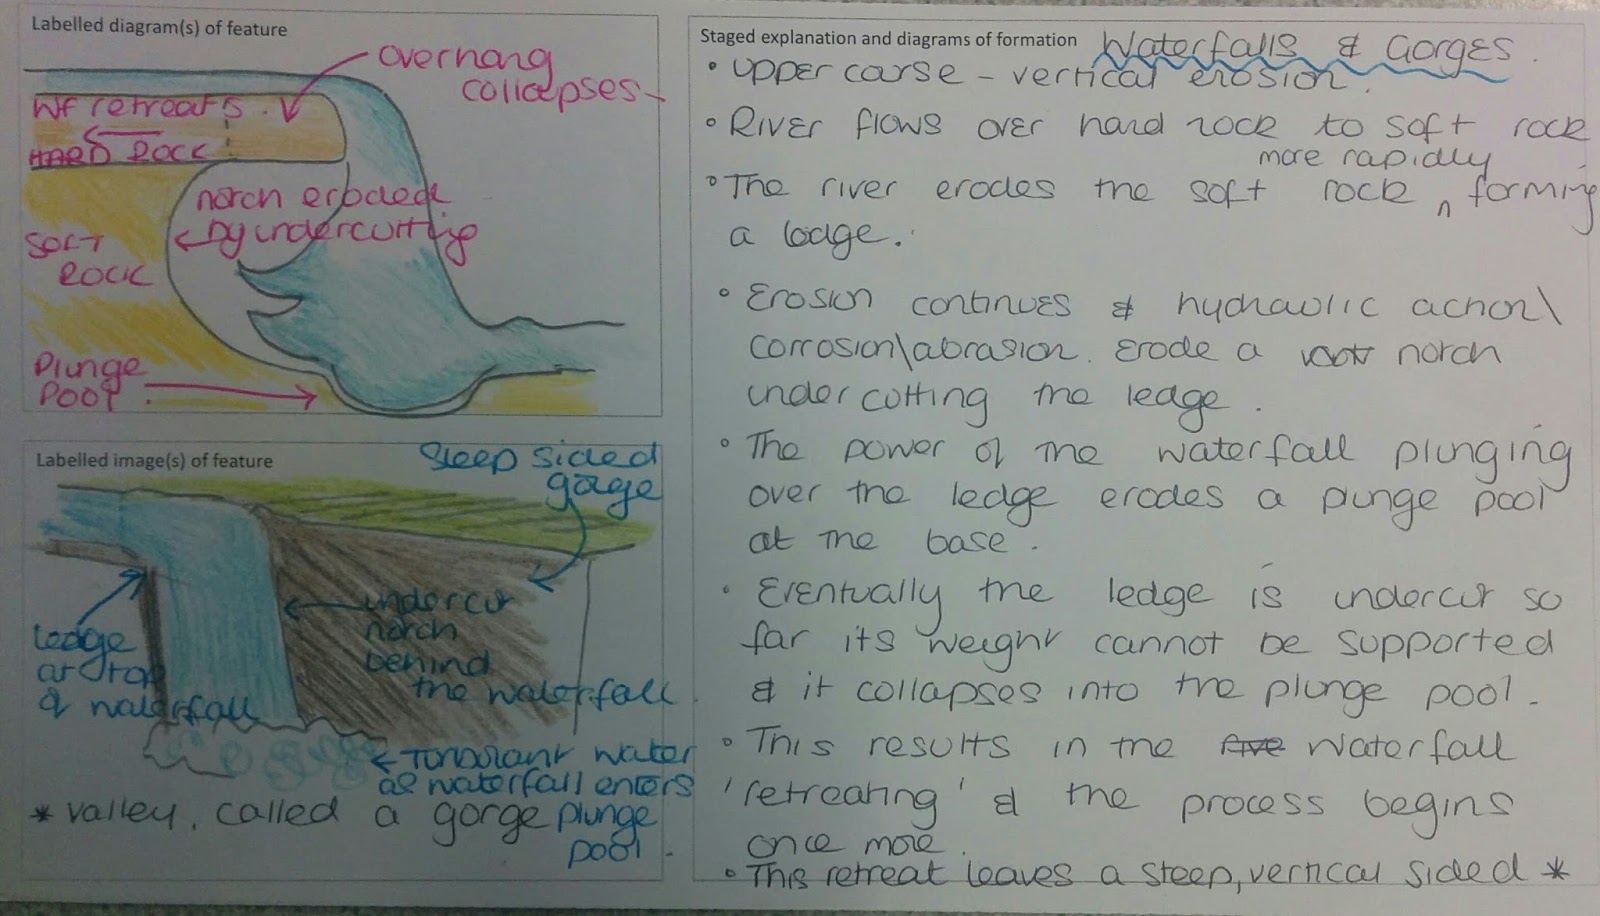 Labelled diagram(s) of feature
overhang
collapses
WF retreats.
HARD ROCK
notch eroded
by undercutting
SOFT
ROCK
Plunge
Pool
Labelled image(s) of feature
Steep sided
gorge
undercut
notch
behind
the waterfall.
Ledge
at top
of waterfall
water
as waterfall enters
plunge
pool.
* valley, called a gorge
Staged explanation and diagrams of formation Waterfalls & Gorges.
• Upper carse - vertical erosion.
• River flows over hard rock to soft rock
more rapidly
• The river erodes the soft rock ^ forming
a ledge.
• Erosion continues & hydraulic action\
corrosion\abrasion. Erode a notch
undercutting the ledge.
• The power of the waterfall plunging
over the ledge erodes a plunge pool
at the base.
• Eventually the ledge is undercut so
far its weight cannot be supported
& it collapses into the plunge pool.
• This results in the waterfall
'retreating' & the process begins
once more.
• This retreat leaves a steep, vertical sided *